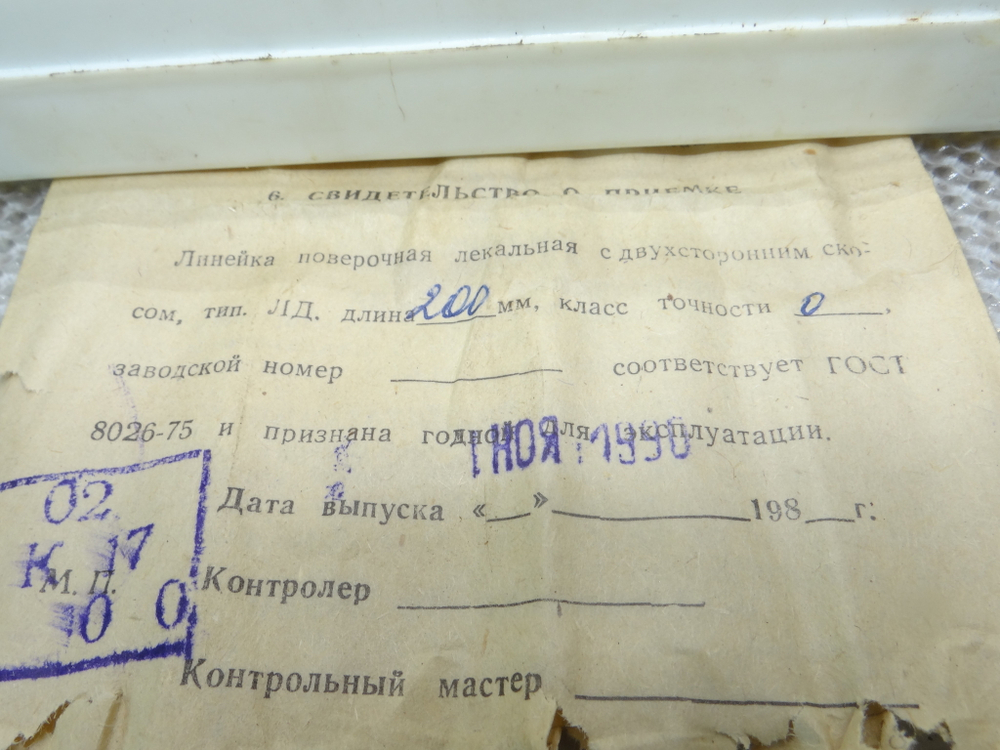 6. СВИДЕТЕЛЬСТВО О ПРИЕМКЕ
Линейка поверочная лекальная с двухсторонним ско-
сом, тип. ЛД. длина 200 мм, класс точности 0,
заводской номер ______ соответствует ГОСТ
8026-75 и признана годной для эксплуатации.
НОЯ 1990
Дата выпуска «__» ______ 198__г:
02
К 17
М. П.
0 0
Контролер ______
Контрольный мастер ______